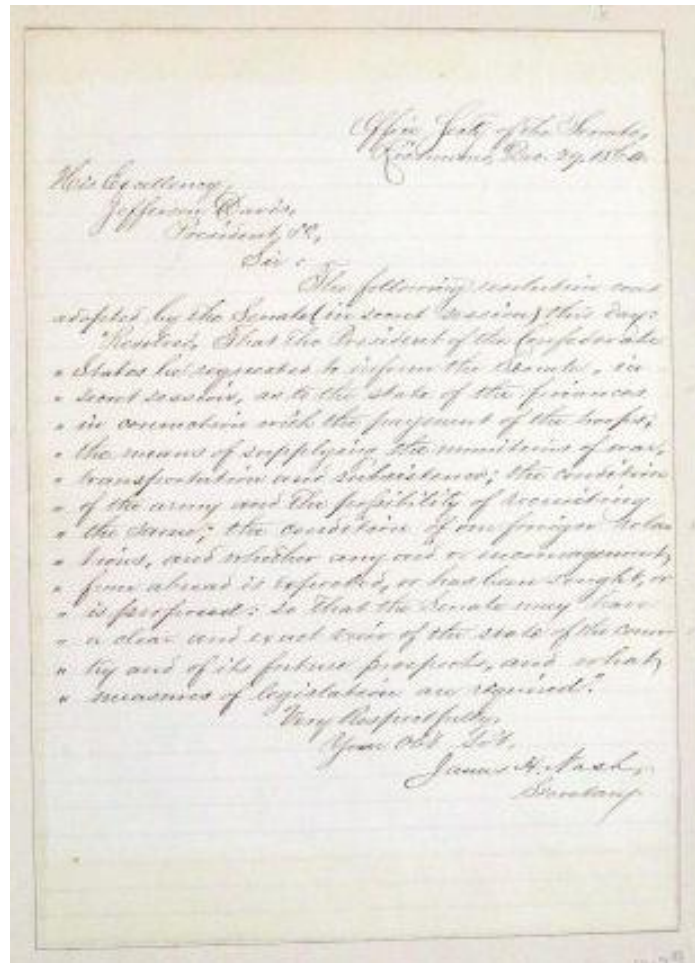 Office Secty of the Senate,
Richmond, Dec. 29, 1864.
His Excellency,
Jefferson Davis,
President, &c,
Sir :
The following resolution was
adopted by the Senate (in secret session) this day:
"Resolved, That the President of the Confederate
" States be requested to inform the Senate, in
" secret session, as to the state of the finances
" in connection with the payment of the troops;
" the means of supplying the munitions of war,
" transportation and subsistence; the condition
" of the army and the possibility of recruiting
" the same; the condition of our foreign rela
" tions, and whether any aid or encouragement,
" from abroad is expected, or has been sought, or
" is proposed: so that the Senate may have
" a clear and exact view of the state of the coun
" try and of its future prospects, and what,
" measures of legislation are required."
Very Respectfully,
Your Obt Svt,
James H. Nash,
Secretary